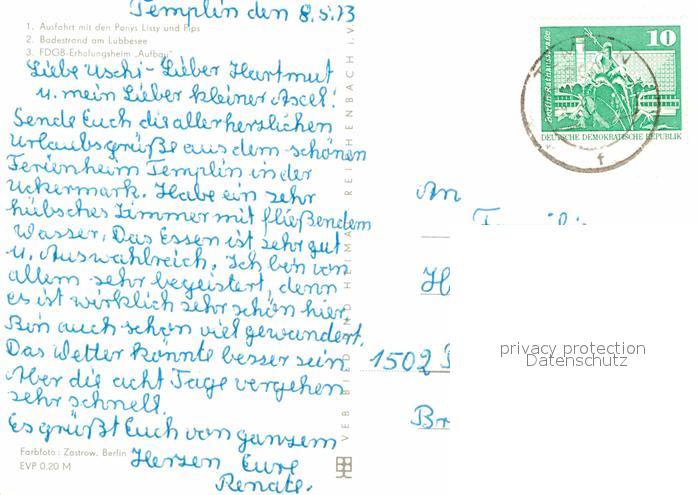 Templin den 8.5.73
1. Ausfahrt mit den Ponys Lissy und Pips
2. Badestrand am Lübbesee
3. FDGB-Erholungsheim „Aufbau"
Liebe Uschi - Lieber Hartmut
u. mein Lieber kleiner Ascel!
Sende Euch die allerherzlichen
Urlaubsgrüße aus dem schönen
Ferienheim Templin in der
Uckermark. Habe ein sehr
hübsches Zimmer mit fließendem
Wasser. Das Essen ist sehr gut
u. Auswahlreich. Ich bin von
allem sehr begeistert, denn
es ist wirklich sehr schön hier.
Bin auch schon viel gewandert.
Das Wetter könnte besser sein
Aber die acht Tage vergehen
sehr schnell.
Es grüßt Euch von ganzem
Herzen Eure
Renate.
Farbfoto: Zastrow, Berlin
EVP 0,20 M
VEB BILD UND HEIMAT REICHENBACH i. V.
10
Berlin-Rathausstraße
DEUTSCHE DEMOKRATISCHE REPUBLIK
f
An
H
1502
Br
privacy protection
Datenschutz